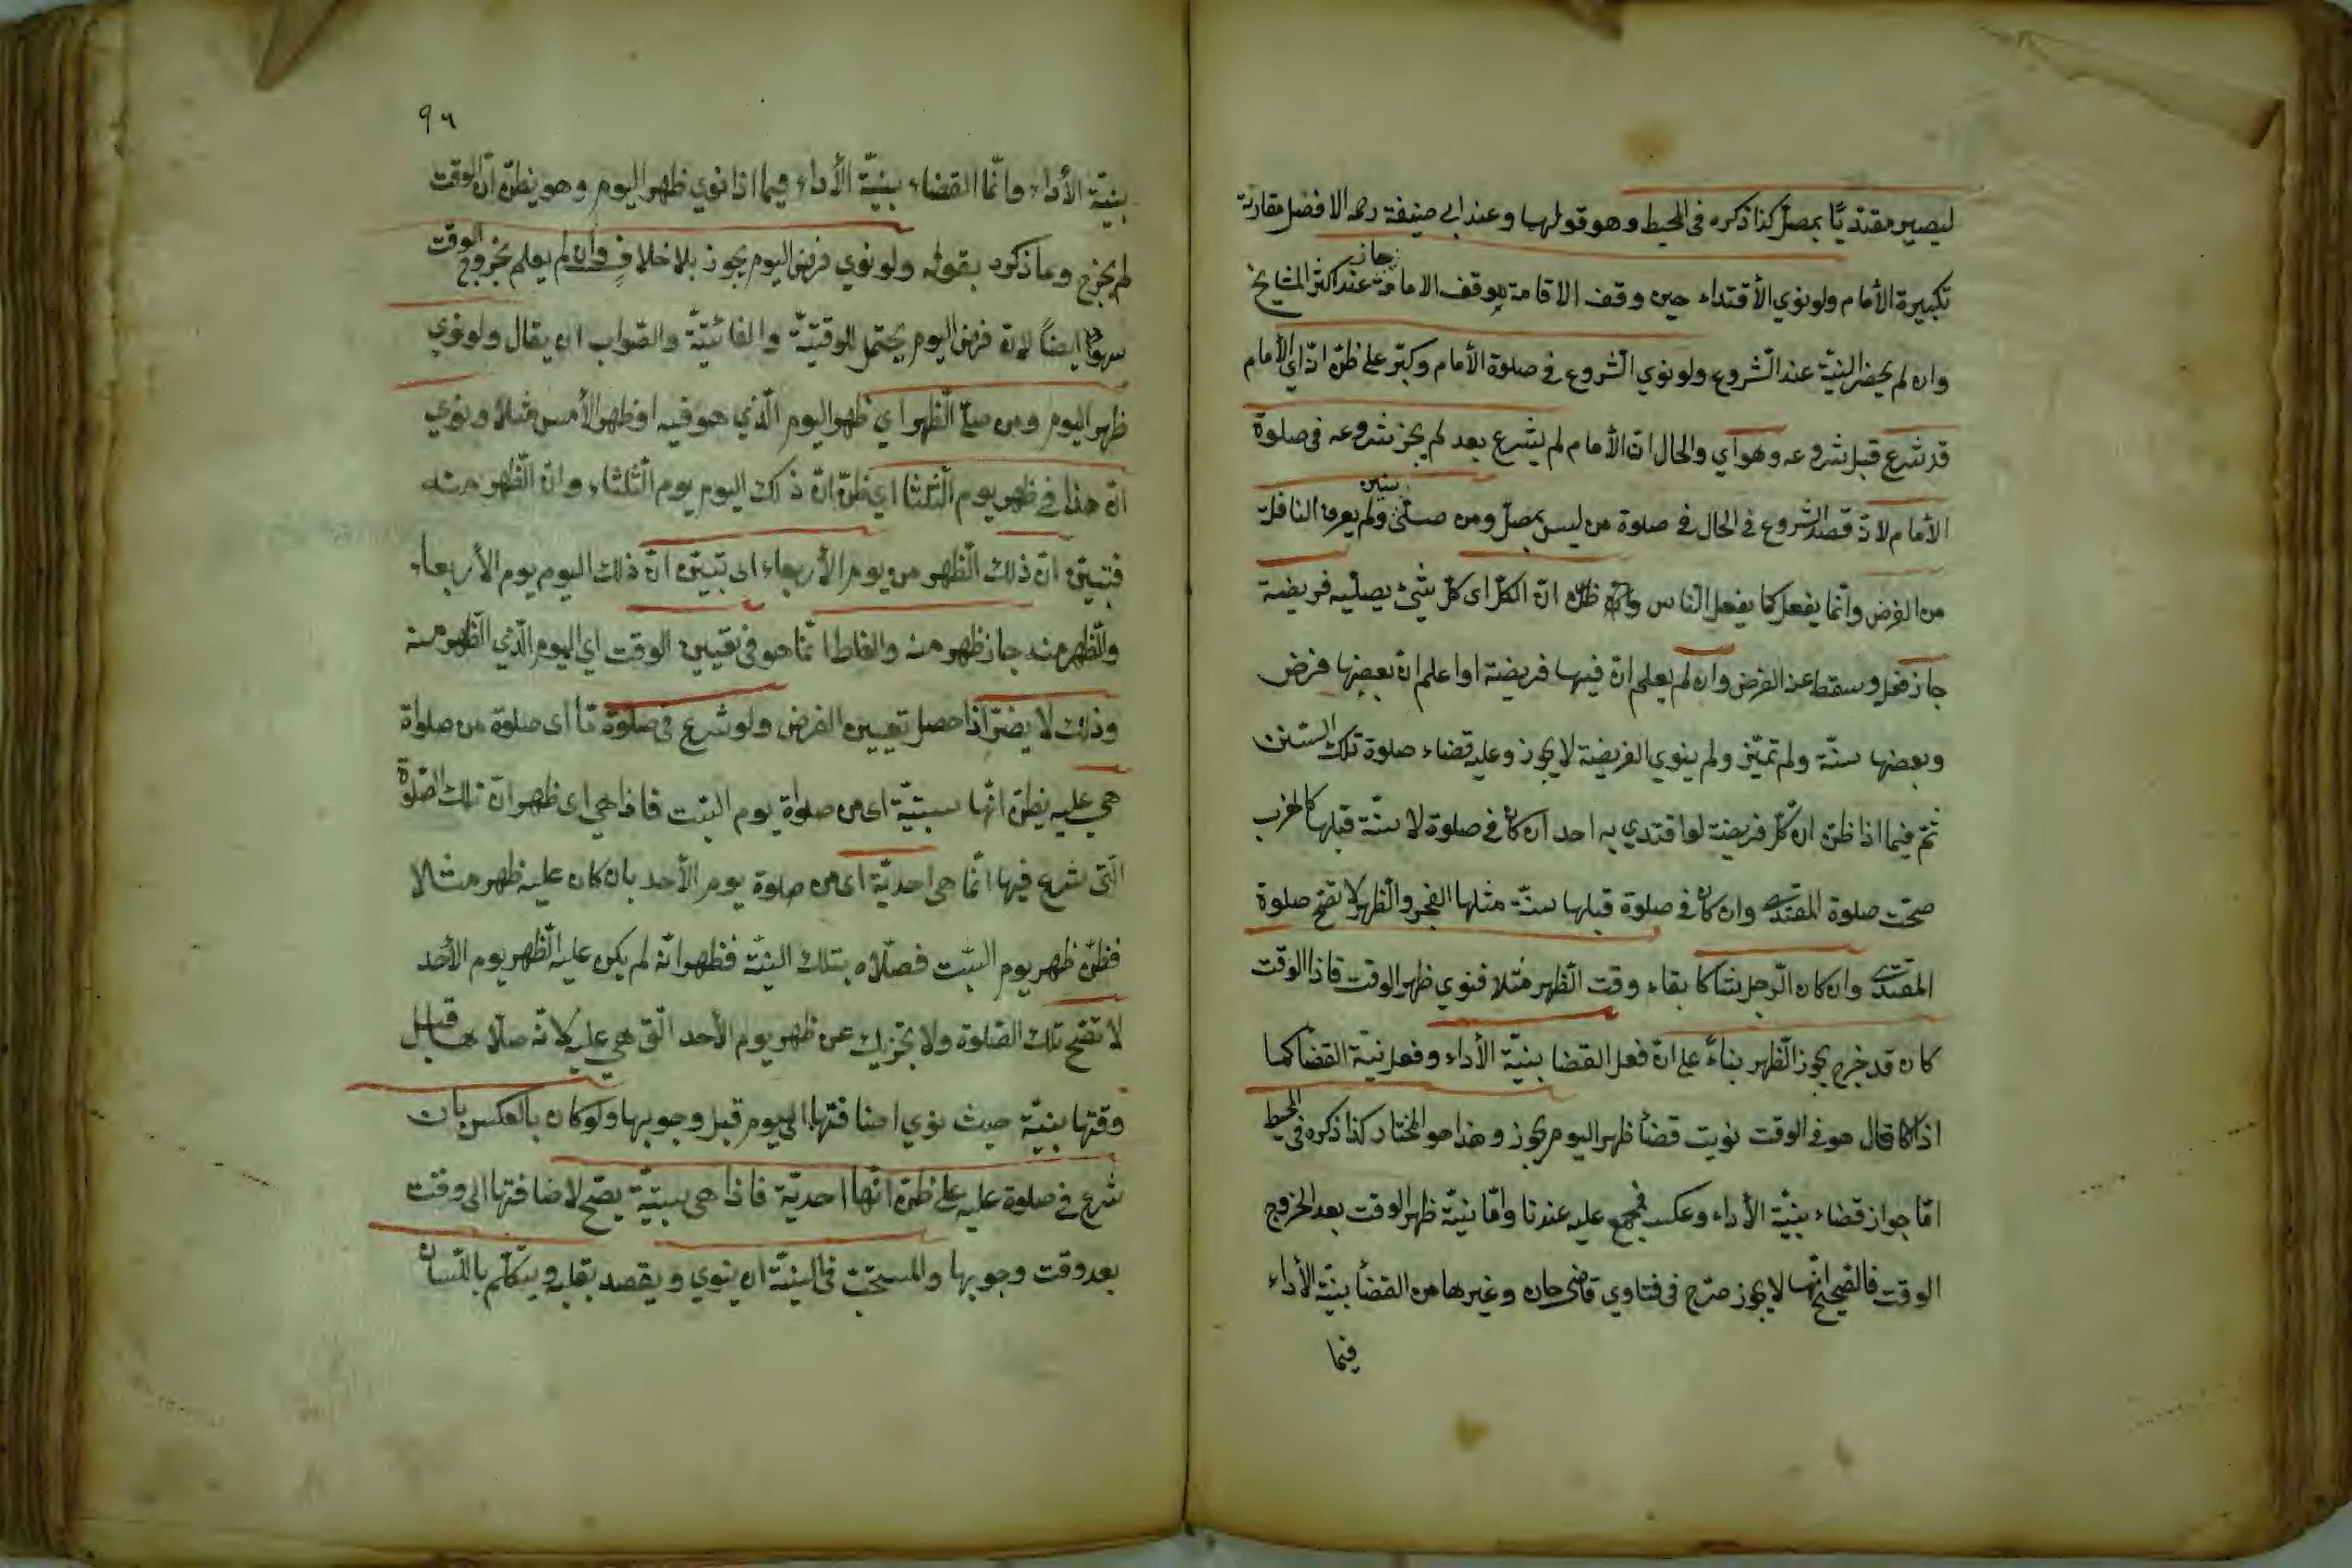 ليصير مقتديًا بمصلّ كذا ذكره فى المحيط وهو قولهما وعند ابى حنيفة رحمه الافضل مقارنة
تكبيرة الأمام ولو نوي الأقتداء حين وقف الاقامة موقف الامامة جاز عند اكثر المشايخ
وان لم يحضر النيّة عند الشّروع ولو نوي الشّروع فى صلوة الأمام وكبّر على ظنّ انّه اي الأمام
قد شرع قبل شروعه وهو اي والحال انّ الأمام لم يشرع بعد لم يجز شروعه فى صلوة
الأمام لانّه قصد الشروع فى الحال فى صلوة من ليس بمصلّ ومن صلّى سنين ولم يعرف النافلة
من الفرض وانّما يفعل كما يفعل النّاس وان ظنّ انّ الكلّ اى كلّ شيئ يصلّيه فريضة
جاز فعله وسقط عنه الفرض وان لم يعلم انّ فيها فريضة او اعلم انّ بعضها فرض
وبعضها سنّة ولم تميّز ولم ينوي الفريضة لا يجوز وعليه قضاء صلوة تلك السّنين
ثمّ فيما اذا ظنّ ان كلّ فريضة لو اقتدي به احد ان كان فى صلوة لا سنّة قبلها كالمغرب
صحّت صلوة المقتدى وان كان فى صلوة قبلها سنّة مثلها الفجر والظّهر لا تصحّ صلوة
المقتدى وان كان الرّجل شاكا بقاء وقت الظّهر مثلا فنوي ظهر الوقت فاذا الوقت
كان قد خرج يجوز الظّهر بناءً على انّ فعل القضا بنيّة الأداء وفعل نيّة القضا كما
اذا كما قال هو فى الوقت نويت قضأ ظهر اليوم يجوز وهذا هو المختار كذا ذكره فى المحيط
امّا جواز قضاء بنيّة الأداء وعكسه فمجمع عليه عندنا وامّا نيّة ظهر الوقت بعد الخروج
الوقت فالصّحيح انّها لا يجوز صرّح فى فتاوي قاضى خان وغيرها من القضأ بنيّة الأداء
فيما
٩٦
بنيّة الأداء وانّما القضاء بنيّة الأداء فيما اذا نوي ظهر اليوم وهو يظنّ انّ الوقت
لم يخرج وما ذكره بقوله ولو نوي فرض اليوم يجوز بلا خلافٍ وان لم يعلم بخروج الوقت
ايضاً لانّ فرض اليوم يحتمل الوقتيّة والفائتيّة والصّواب ان يقال ولو نوي
ظهر اليوم ومن صلّى الظّهر اي ظهر اليوم الّذي هو فيه او ظهر الأمس مثلا ونوي
انّ هذا فى ظهر يوم الثّلثا اي ظنّ انّ ذلك اليوم يوم الثّلثاء وانّ الظّهر منه
فتبيّن انّ ذلك الظّهر من يوم الأربعاء اى تبيّن انّ ذلك اليوم يوم الأربعاء
والظّهر منه جاز ظهر منه والغلط انّما هو فى تعيين الوقت اي اليوم الّذي الظّهر منه
وذلك لا يضرّ اذا حصل تعيين الفرض ولو شرع فى صلوة ما اى صلوة من صلواة
هي عليه يظنّ انّها سبتيّة اى من صلواة يوم السّبت فاذا هي اى ظهر انّ تلك الصّلوة
الّتى شرع فيها انّما هى احديّة اى من صلوة يوم الأحد بان كان عليه ظهر مثلا
فظنّ ظهر يوم السّبت فصلّاه بتلك النيّة فظهر انّه لم يكن عليه الظّهر يوم الأحد
لا تصحّ تلك الصّلوة ولا تجزيك عن ظهر يوم الأحد الّتى هى عليه لانّه صلّاها قبل
وقتها بنيّة حيث نوي اضافتها الى يوم قبل وجوبها ولو كان بالعكس بان
شرع فى صلوة عليه على ظنّ انّها احديّة فاذا هى سبتيّة يصحّ لاضافتها الى وقت
بعد وقت وجوبها والمستحبّ فى النيّة ان ينوي ويقصد بقلبه ويتكلّم باللّسان